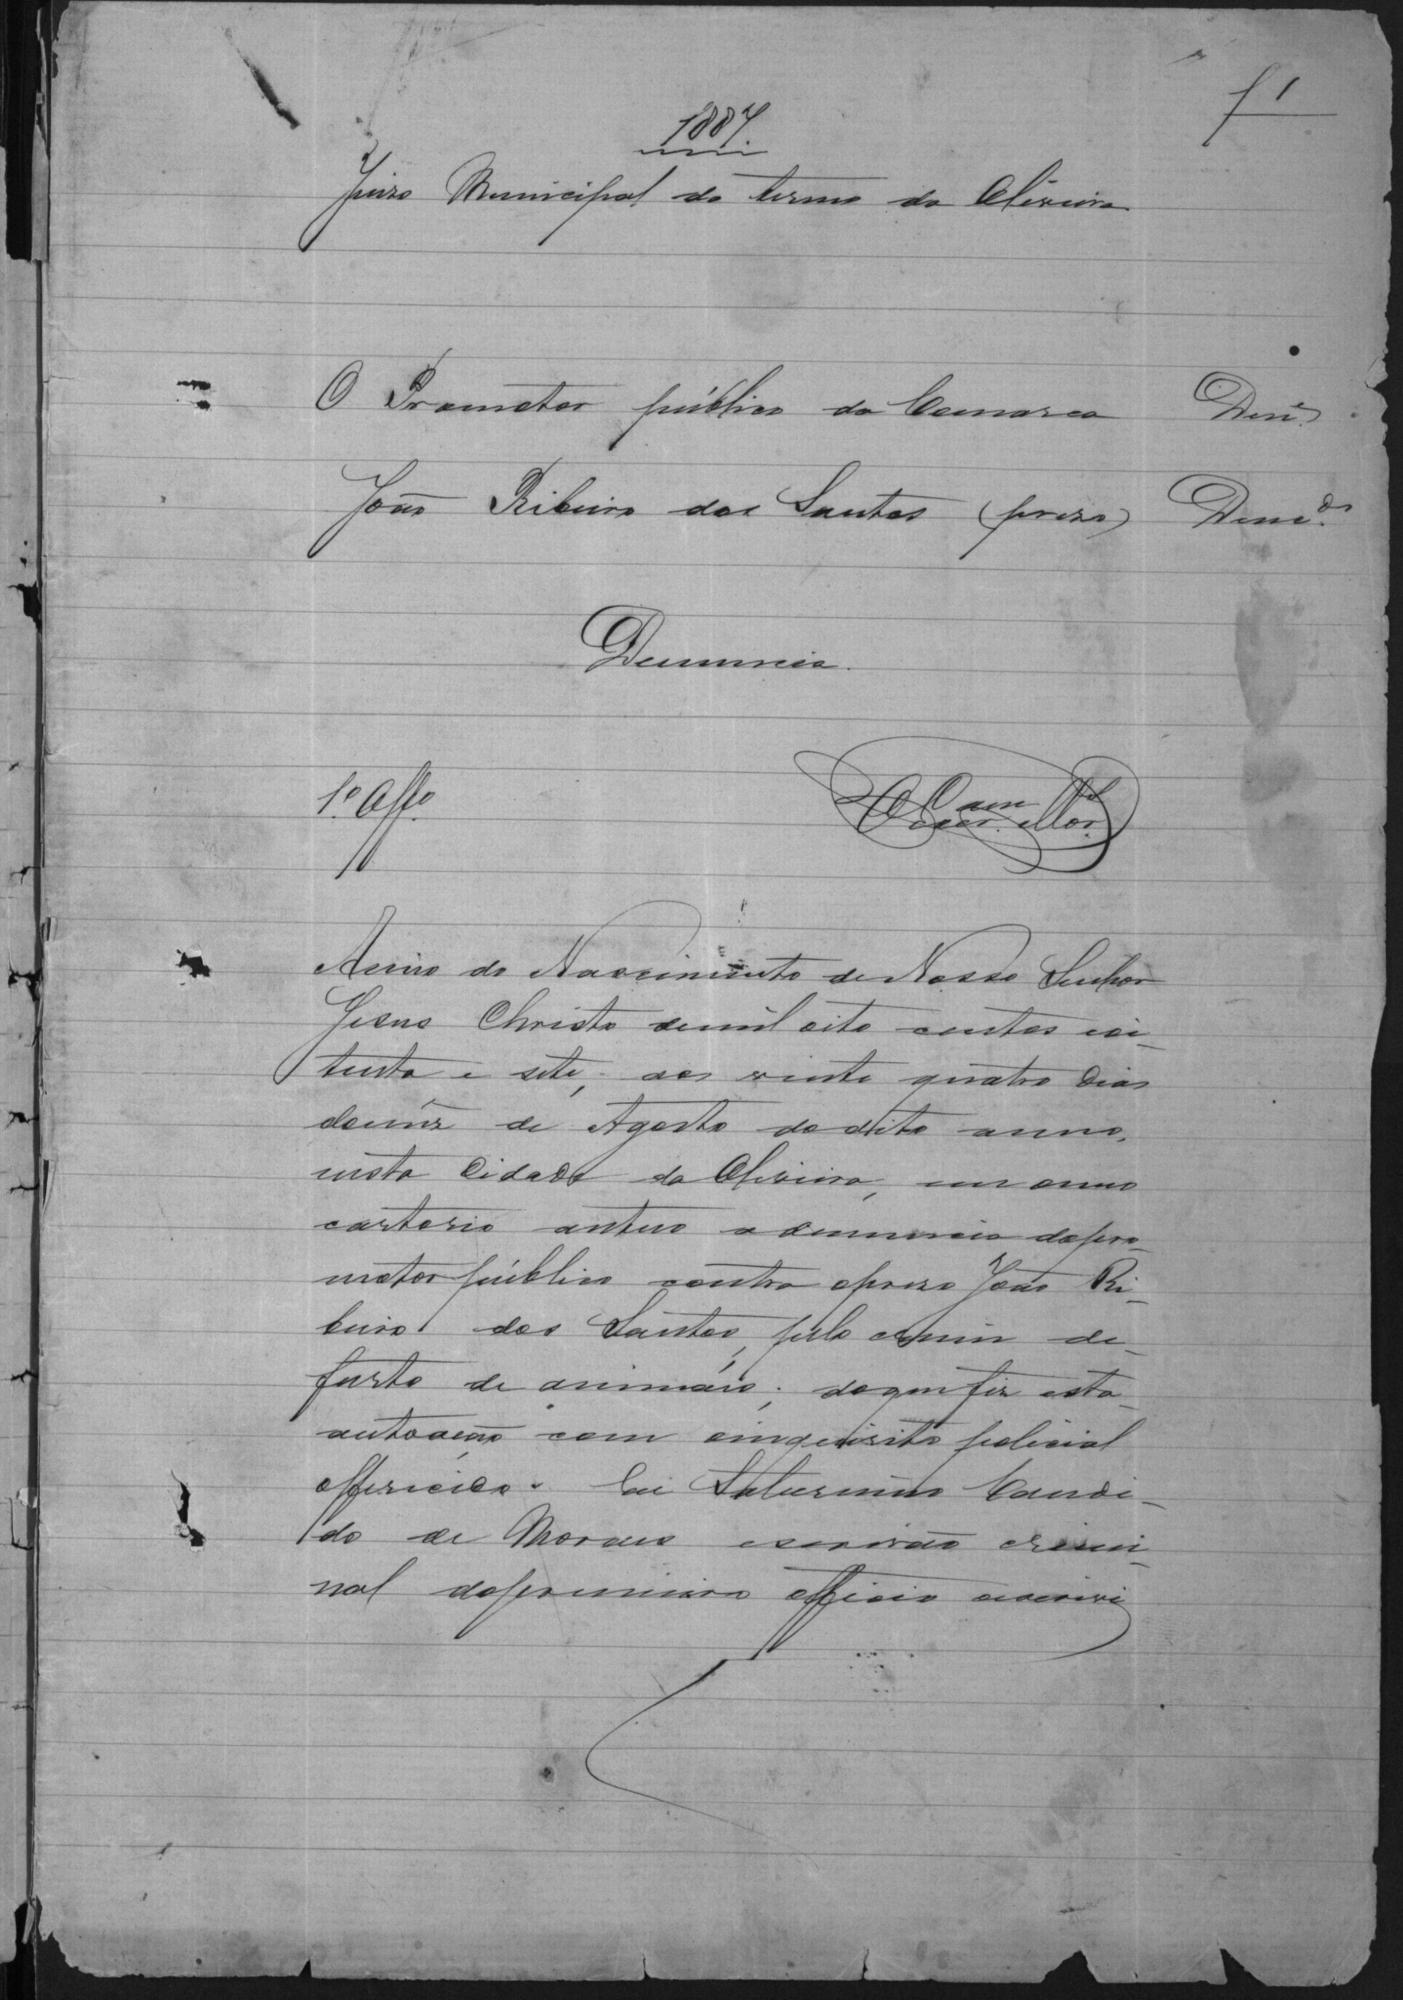 f 1
1887
Juizo Municipal do termo da Oliveira
O Promotor público da Comarca Den.e
João Ribeiro dos Santos (prezo) Denc.do
Denuncia
1.º Off.º
Escr.
Anno do Nascimento de Nosso Senhor
Jesus Christo demil oito centos oi-
tenta e sete, aos vinte quatro dias
domêz de Agosto dodito anno,
nesta Cidade da Oliveira, em omeo
cartorio autuo a denuncia dopro-
motor público contra oprezo João Ri-
beiro dos Santos, pelo crime de
furto de animáes; doque fiz esta
autoação com oinquerito policial
offericido. Eu Saturnino Candi-
do de Moraes escrivão crimi-
nal doprimeiro officio escrivi